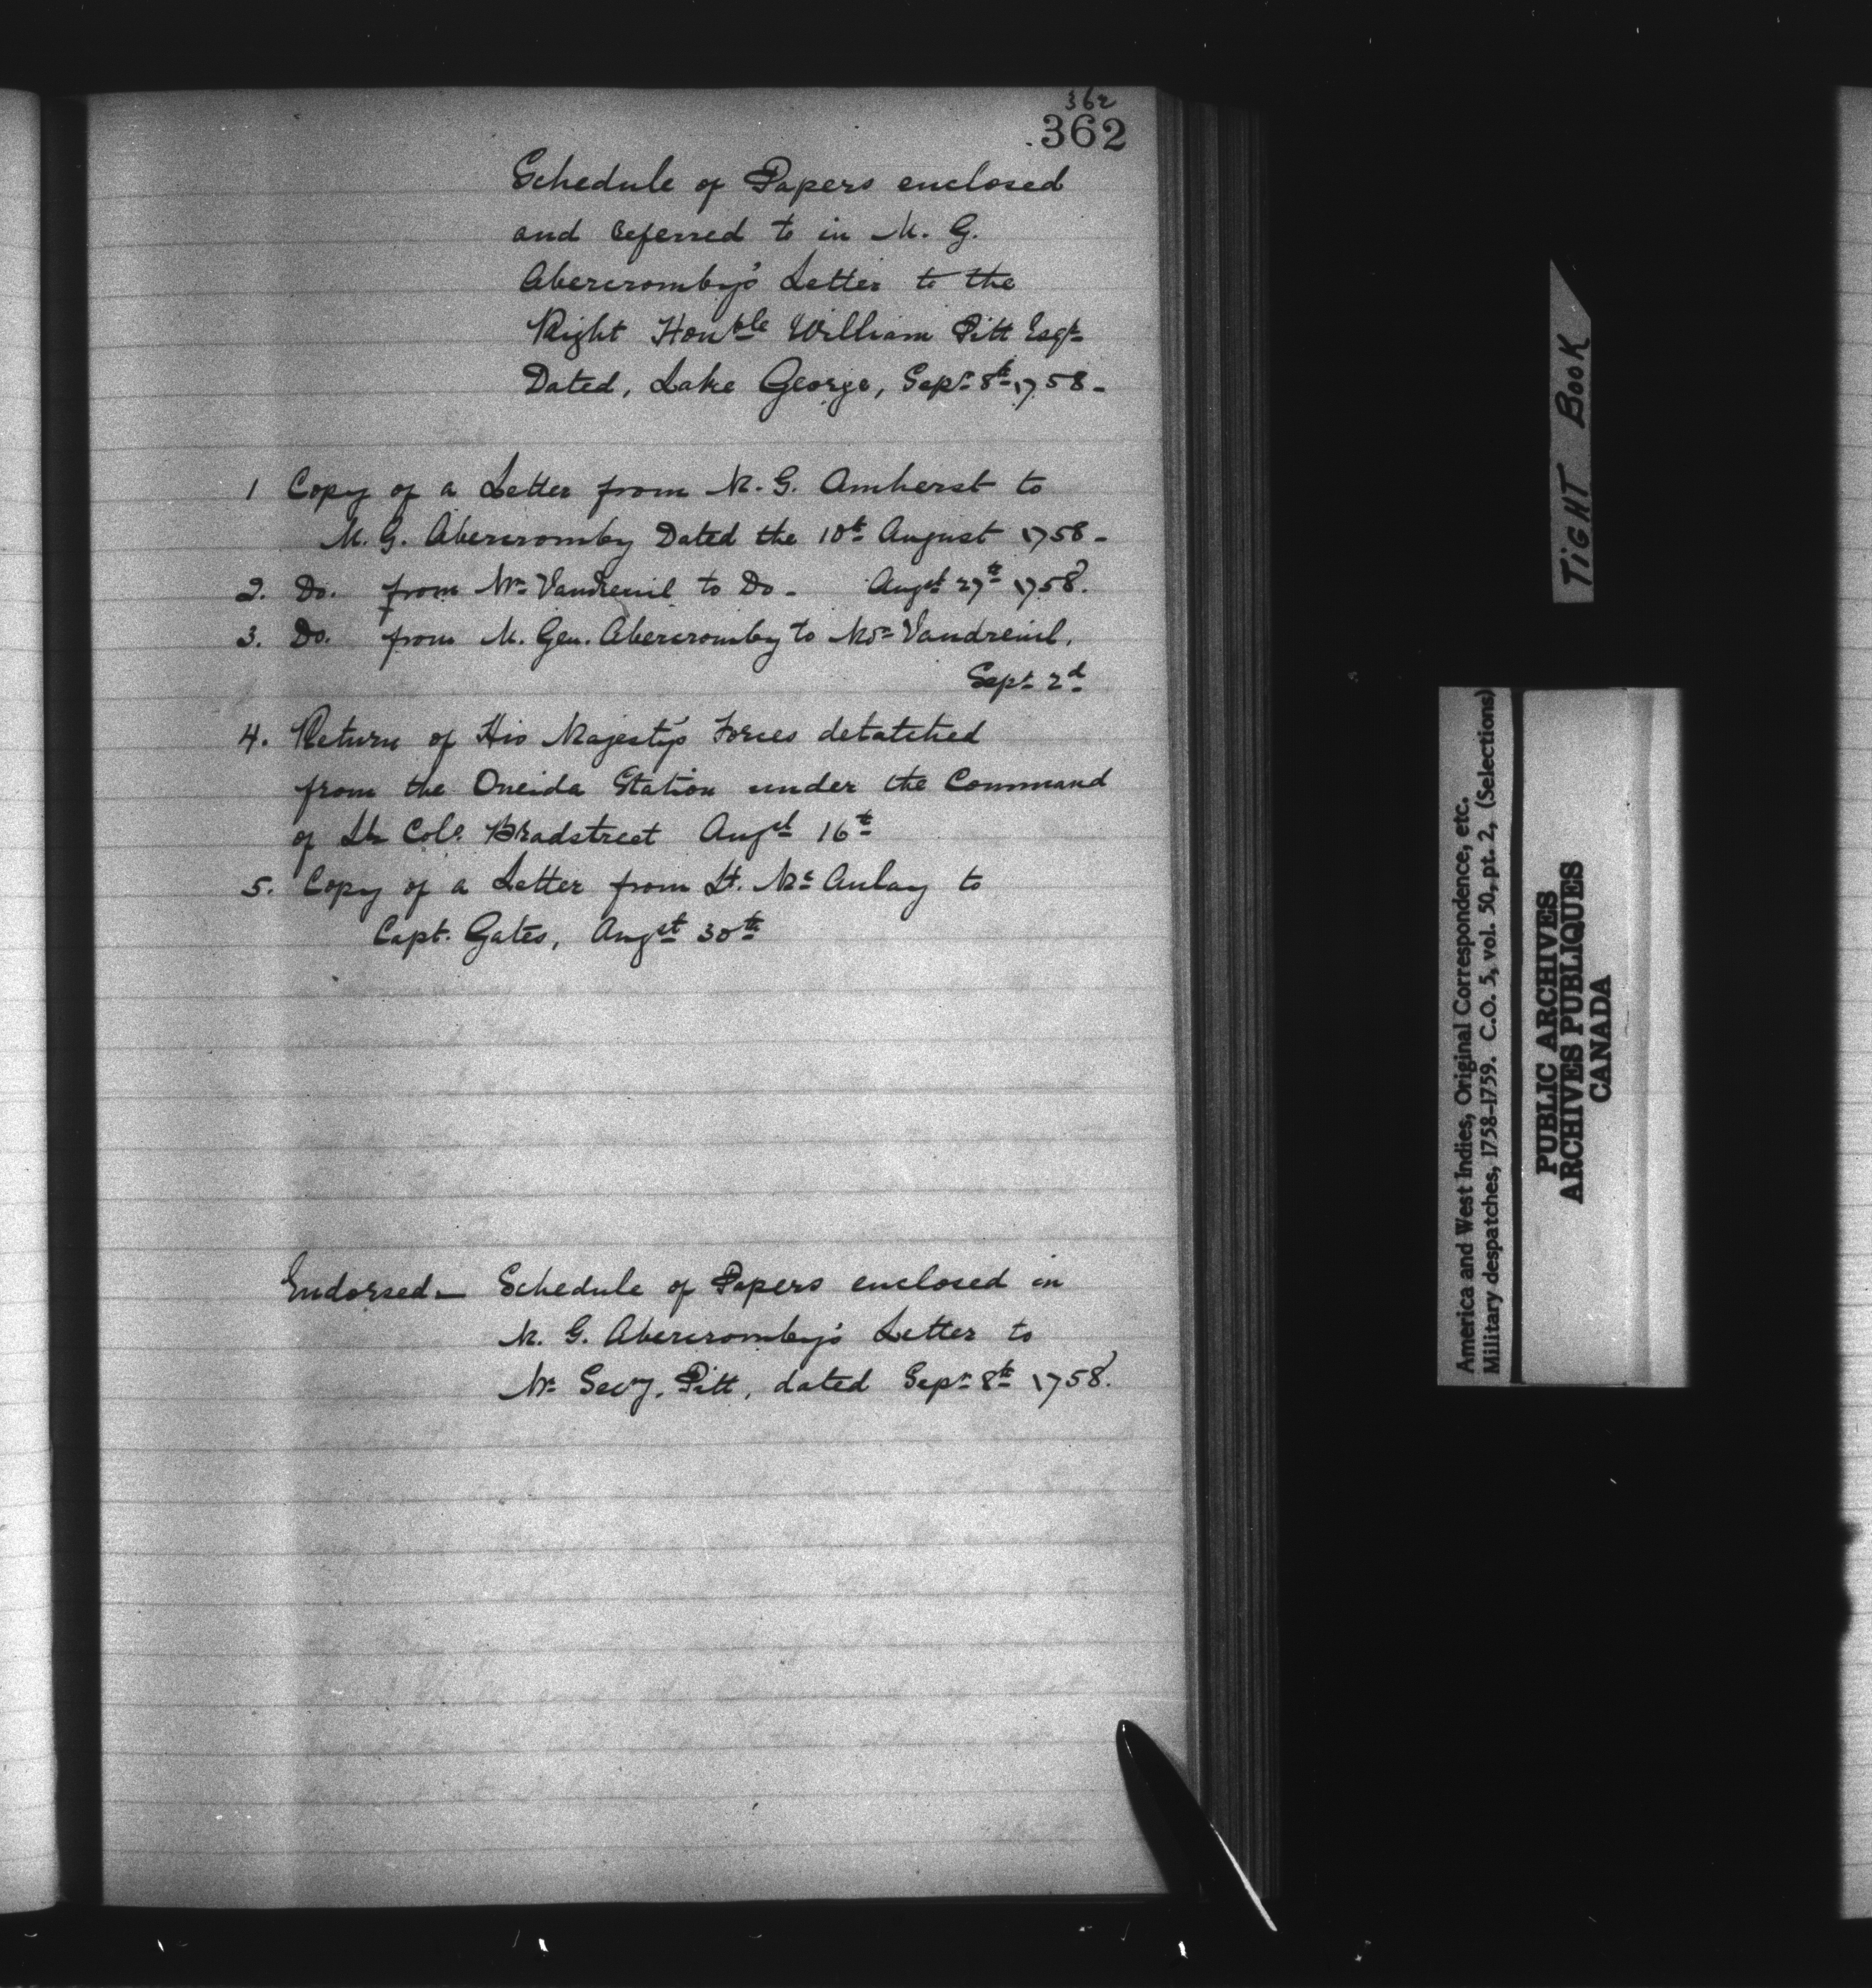 362
362
Schedule of Papers enclosed
and referred to in M. G.
Abercromby's Letter to the
Right Honble William Pitt Esqr
Dated, Lake George, Sepr 8th 1758-
1 Copy of a Letter from M. G. Amherst to
M. G. Abercromby Dated the 10th August 1758-
2. Do. from Mr Vaudreuil to Do - Augst 27th 1758.
3. Do. from M. Gen. Abercromby to Mor Vaudreuil,
Sepr 2d
4. Return of His Majesty's Forces detatched
from the Oneida Station under the Command
of Lt Colo. Bradstreet Augst 16th
5. Copy of a Letter from Lt. Mc Aulay to
Capt. Gates, Augst 30th
Endorsed - Schedule of Papers enclosed in
M. G. Abercromby's Letter to
Mr Secy. Pitt, dated Sepr 8th 1758.
TIGHT BOOK
America and West Indies, Original Correspondence, etc.
Military despatches, 1758-1759. C.O. 5, vol. 50, pt. 2, (Selections)
PUBLIC ARCHIVES
ARCHIVES PUBLIQUES
CANADA